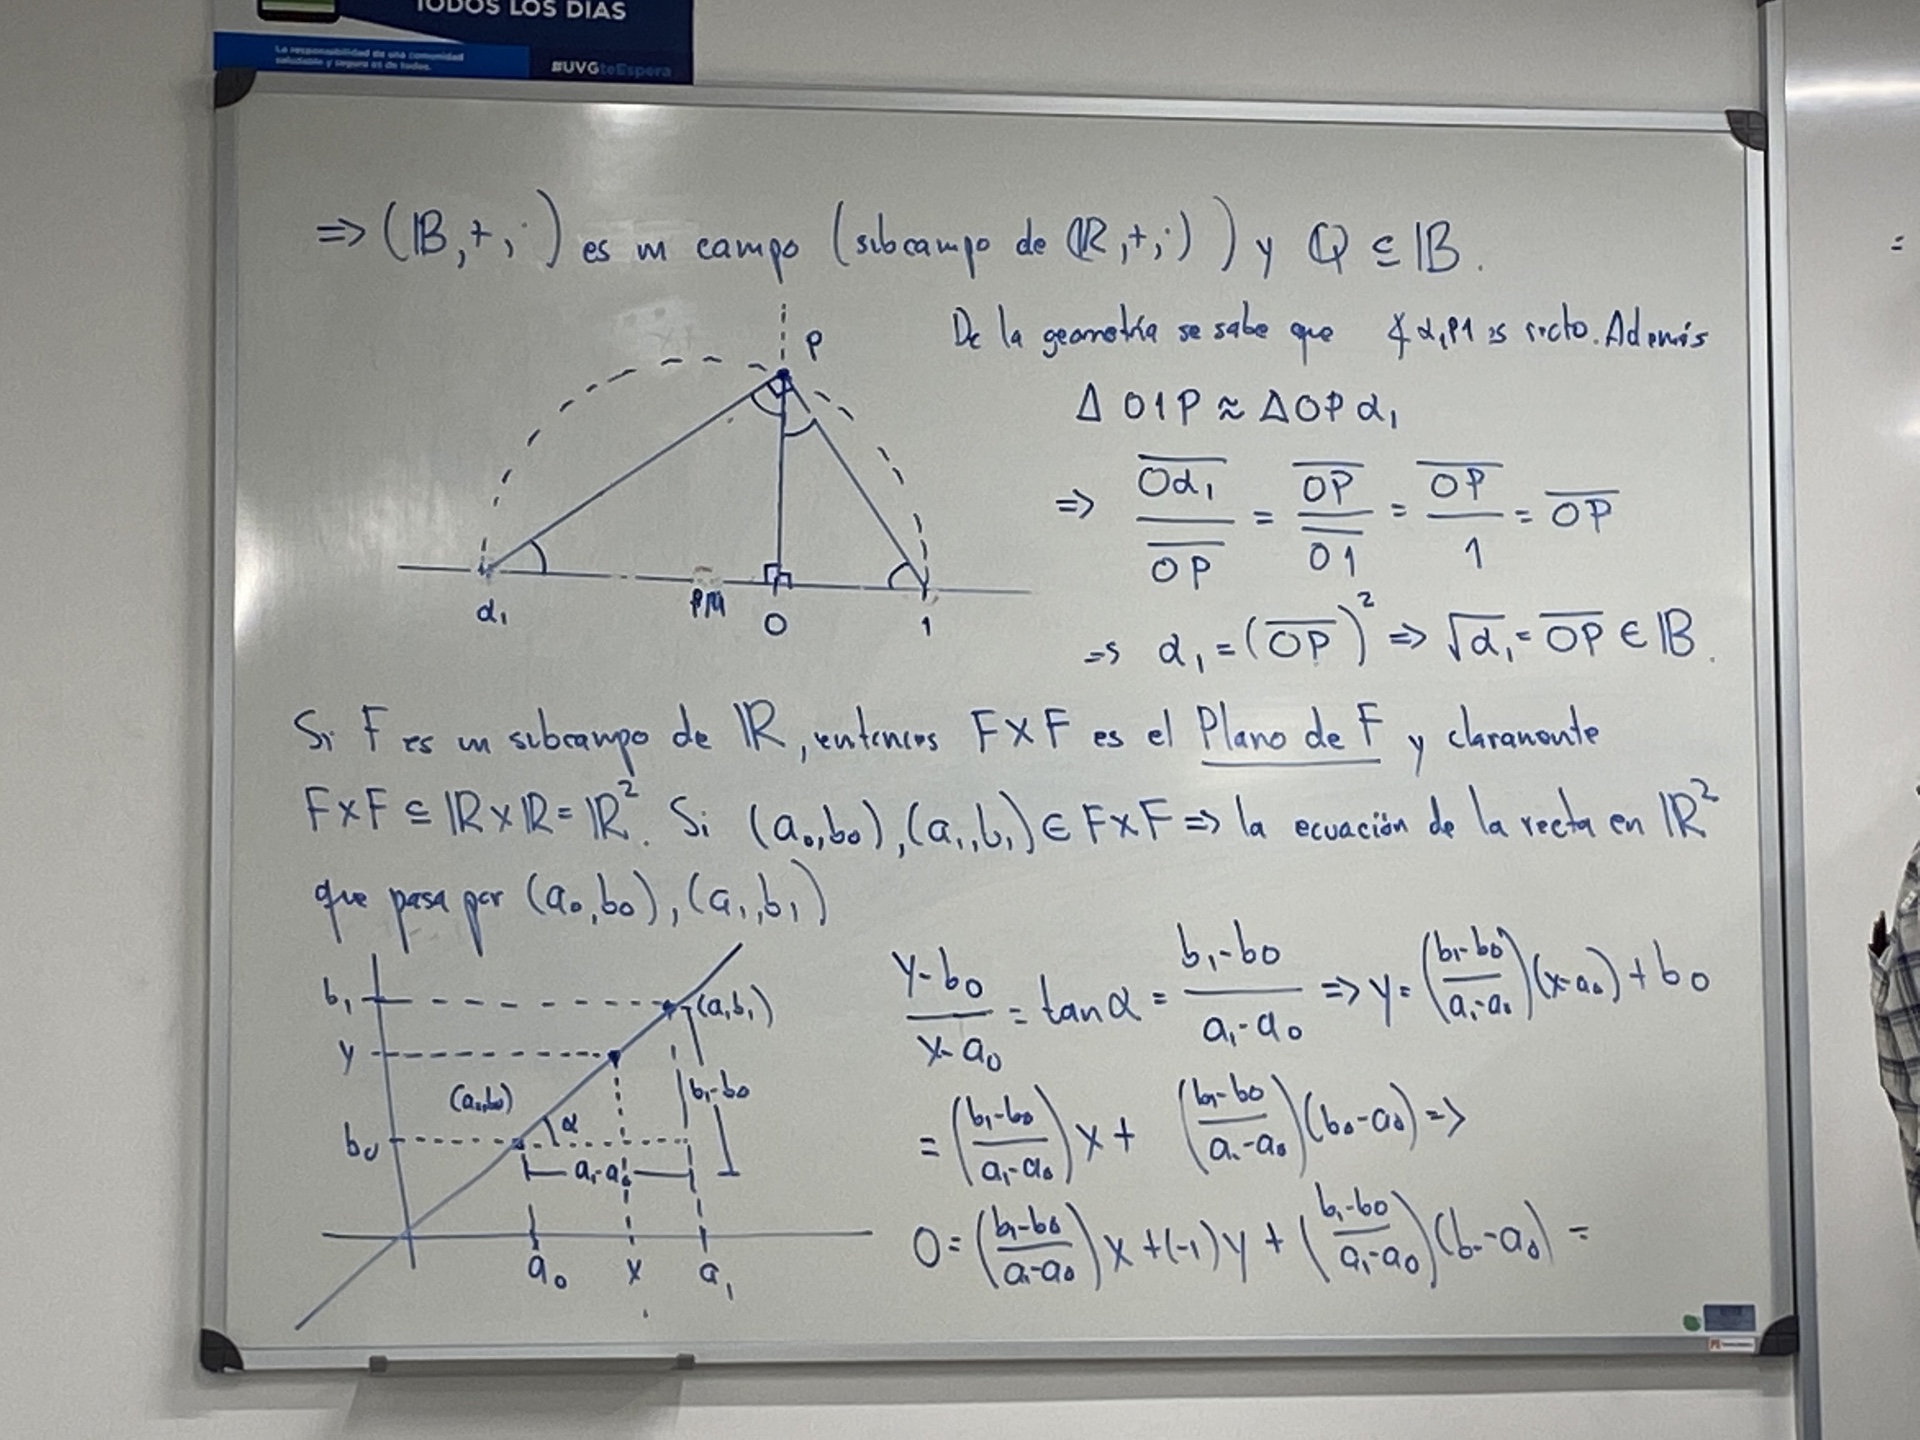 TODOS LOS DIAS
La responsabilidad de una comunidad
saludable y segura es de todos.
#UVGteEspera
⇒ (IB,+,·) es un campo (subcampo de (IR,+,·)) y Q ⊆ IB.
De la geometría se sabe que ∡ α₁P1 es recto. Además
P
Δ O1P ≈ ΔOPα₁
⇒ Oα₁/OP = OP/O1 = OP/1 = OP
α₁ PM O 1
⇒ α₁ = (OP)² ⇒ √α₁ = OP ∈ IB.
Si F es un subcampo de IR, entonces F×F es el Plano de F y claramente
F×F ⊆ IR×IR = IR². Si (a₀,b₀),(a₁,b₁) ∈ F×F ⇒ la ecuación de la recta en IR²
que pasa por (a₀,b₀),(a₁,b₁)
b₁ (a₁b₁)
y
(a₀,b₀) α b₁-b₀
b₀
a₁-a₀
a₀ x a₁
y-b₀/x-a₀ = tanα = b₁-b₀/a₁-a₀ ⇒ y = (b₁-b₀/a₁-a₀)(x-a₀)+b₀
= (b₁-b₀/a₁-a₀)x + (b₁-b₀/a₁-a₀)(b₀-a₀) ⇒
0 = (b₁-b₀/a₁-a₀)x+(-1)y+(b₁-b₀/a₁-a₀)(b₀-a₀) =
=